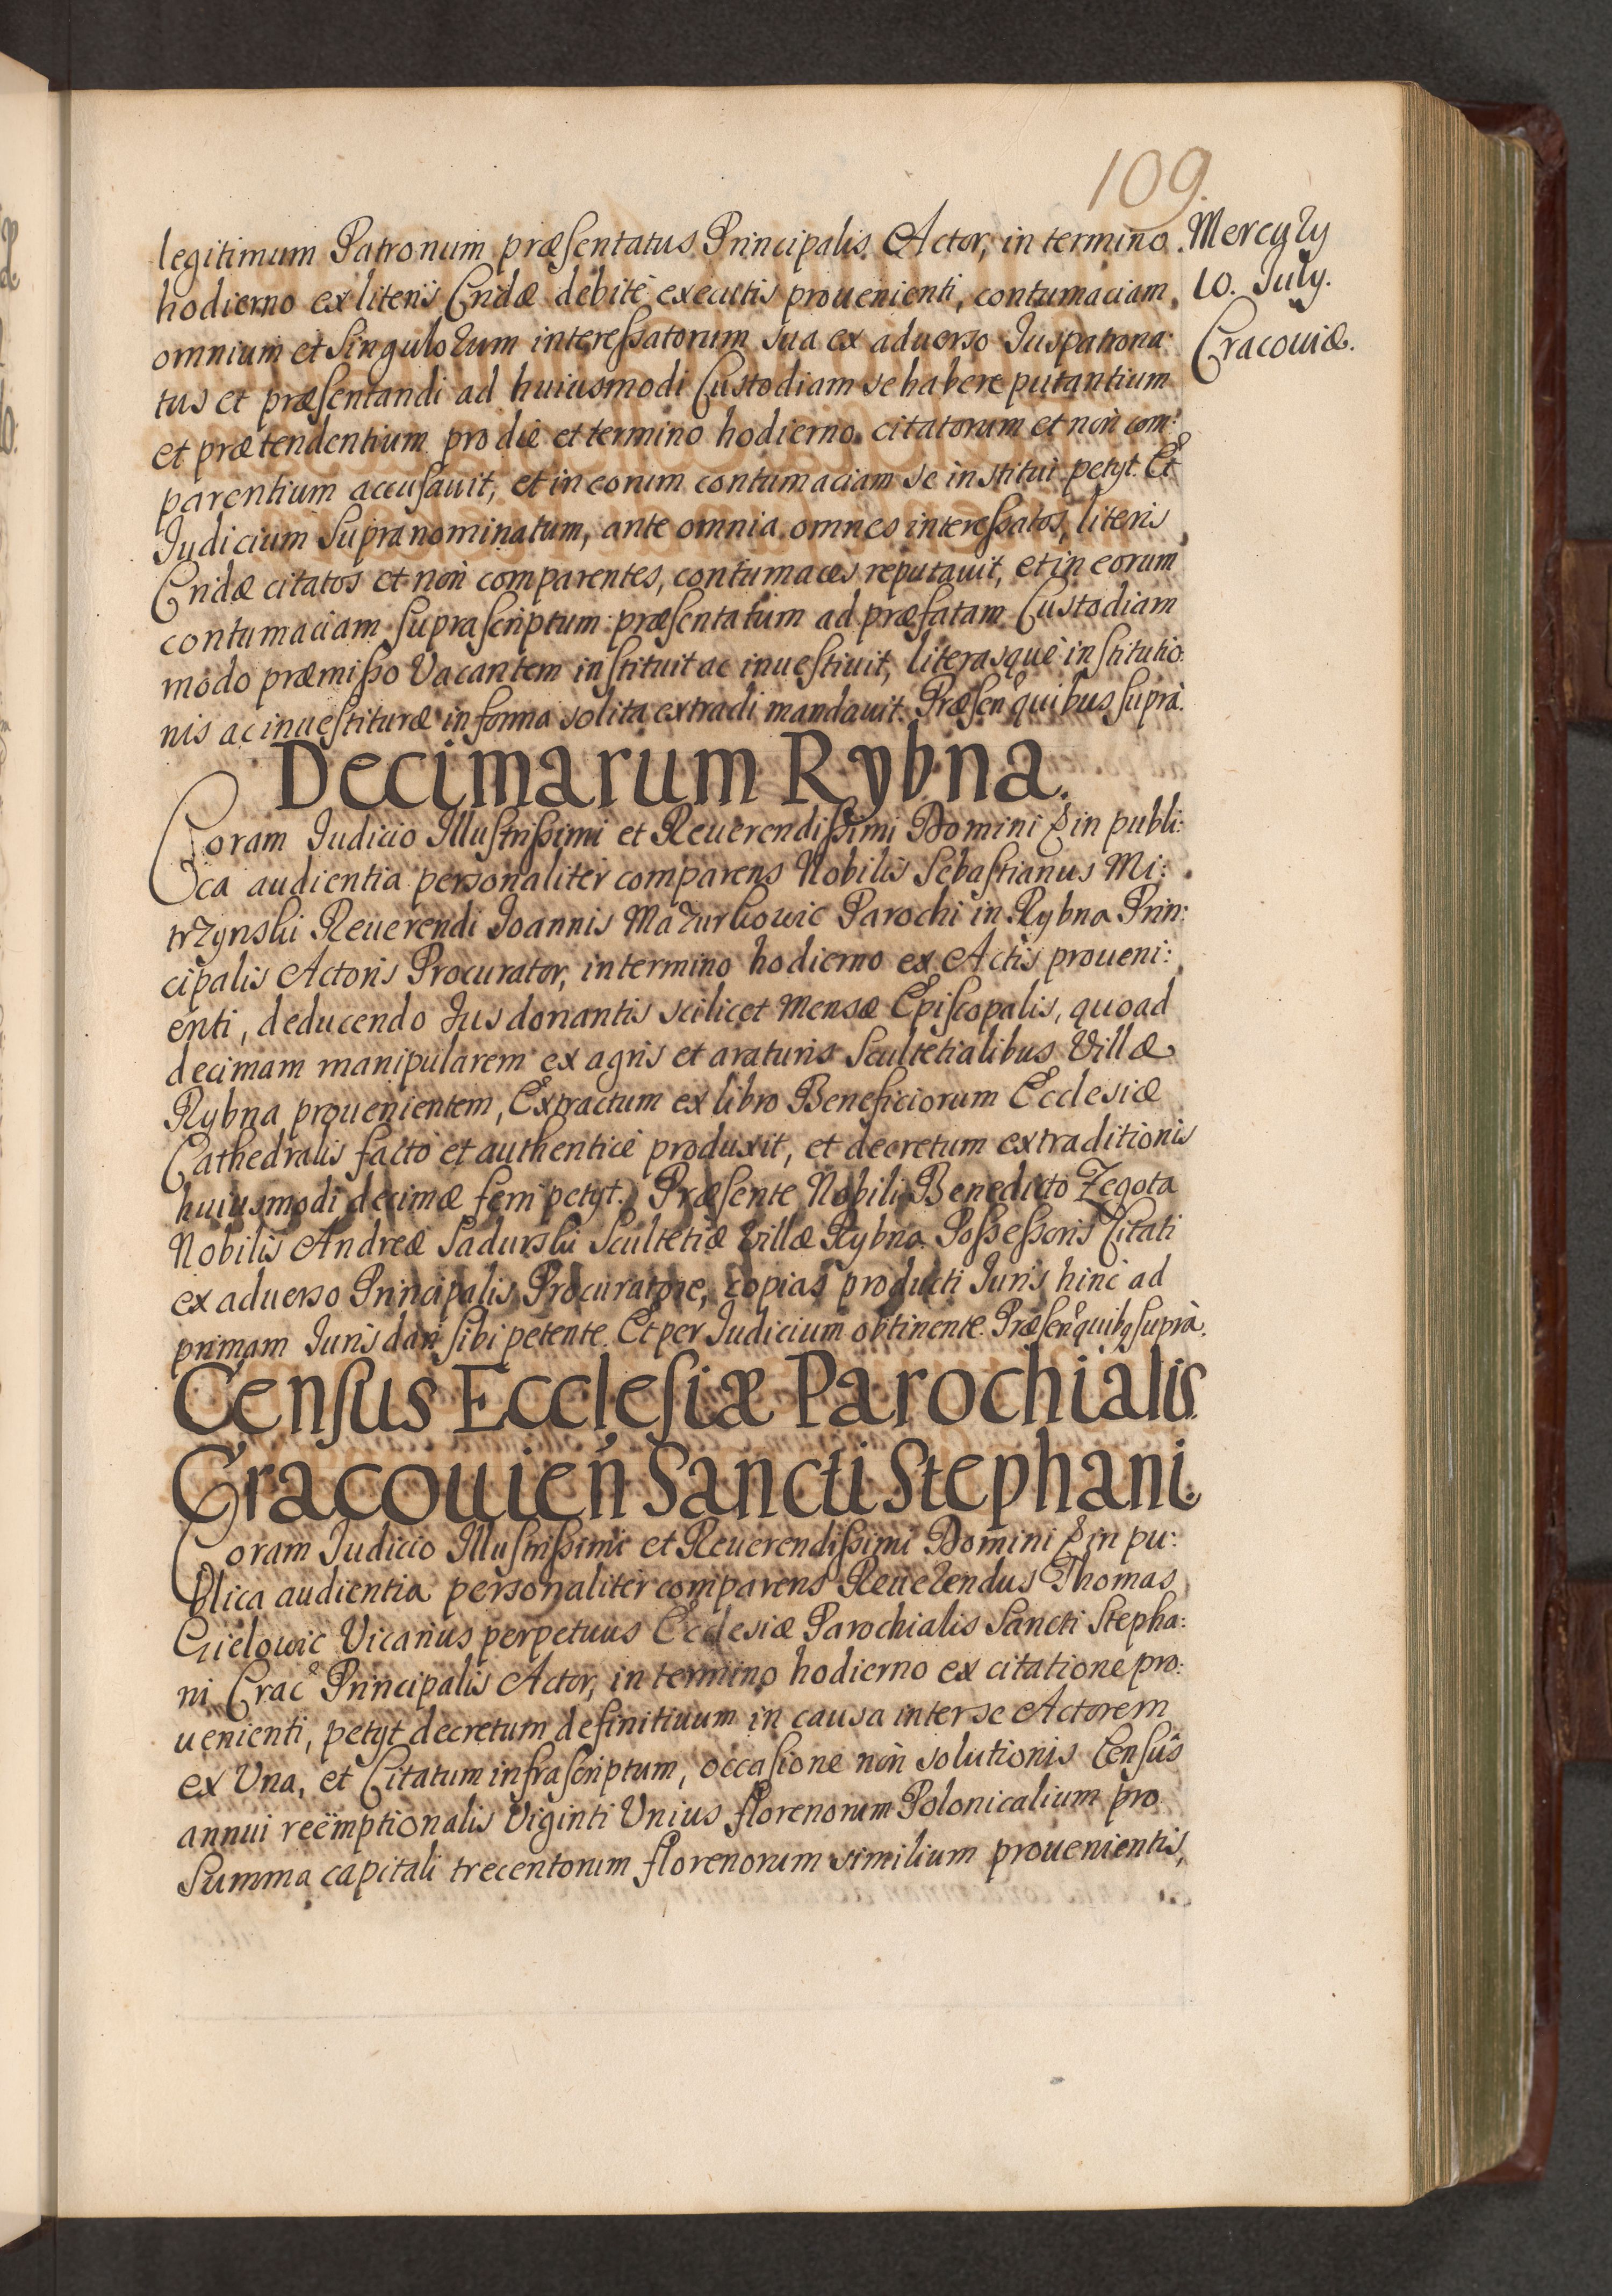 109.
Mercurÿ
10. Julÿ.
Cracouiæ.
legitimum Patronum præſentatus Principalis Actor, in termino
hodierno ex literis Cridæ debitè executis prouenienti, contumaciam
omnium et Singulorum intereſsatorum sua ex aduerso Juspatrona:
tus et præſentandi ad huiusmodi Custodiam se habere putantium
et prætendentium pro die et termino hodierno citatorum et non com:
parentium accuſauit, et in eorum contumaciam se institui petÿt. Et
Judicium Supranominatum, ante omnia omnes intereſsatos, literis
Cridæ citatos et non comparentes, contumaces reputauit, et in eorum
contumaciam ſupraſcriptum præſentatum ad præfatam Custodiam
modo præmiſso Vacantem inſtituit ac inueſtiuit, literasquè inſtitutio:
nis ac inueſtituræ in forma solita extradi mandauit. Præſen quibus ſuprà.
Decimarum Rybna.
Coram Judicio Illuſtriſsimi et Reuerendiſsimi Domini P in publi:
ca audientia personaliter comparens Nobilis Sebaſtianus Mi:
trzynski Reuerendi Joannis Mazurkowic Parochi in Rybna Prin:
cipalis Actoris Procurator, in termino hodierno ex Actis proueni:
enti, deducendo Jus donantis scilicet Mensæ Epiſcopalis, quoad
decimam manipularem ex agris et araturis Scultetialibus Villæ
Rybna prouenientem, Extractum ex libro Beneficiorum Ecclesiæ
Cathedralis facto et authenticè produxit, et decretum extraditionis
huiusmodi decimæ ferri petÿt. Præſente Nobili Benedicto Zegota
Nobilis Andreæ Sadurski Scultetiæ Villæ Rybna Poſseſsoris Citati
ex aduerso Principalis Procuratore, copias producti Juris hinc ad
primam Juris dari ſibi petente. Et per Judicium obtinente. Præſen quibꝫ ſuprà.
Cenſus Eccleſiæ Parochialis
Cracouień Sancti Stephani.
Coram Judicio Illuſtriſsimi et Reuerendiſsimi Domini P in pu:
blica audientia personaliter comparens Reuerendus Thomas
Gielowic Vicarius perpetuus Ecclesiæ Parochialis Sancti Stepha:
ni Crac Principalis Actor, in termino hodierno ex citatione pro:
uenienti, petÿt decretum definitiuum in causa inter se Actorem
ex Vna, et Citatum infraſcriptum, occaſione non solutionis Cenſûs
annui reëmptionalis Viginti Vnius florenorum Polonicalium pro
Summa capitali trecentorum florenorum similium prouenientis,